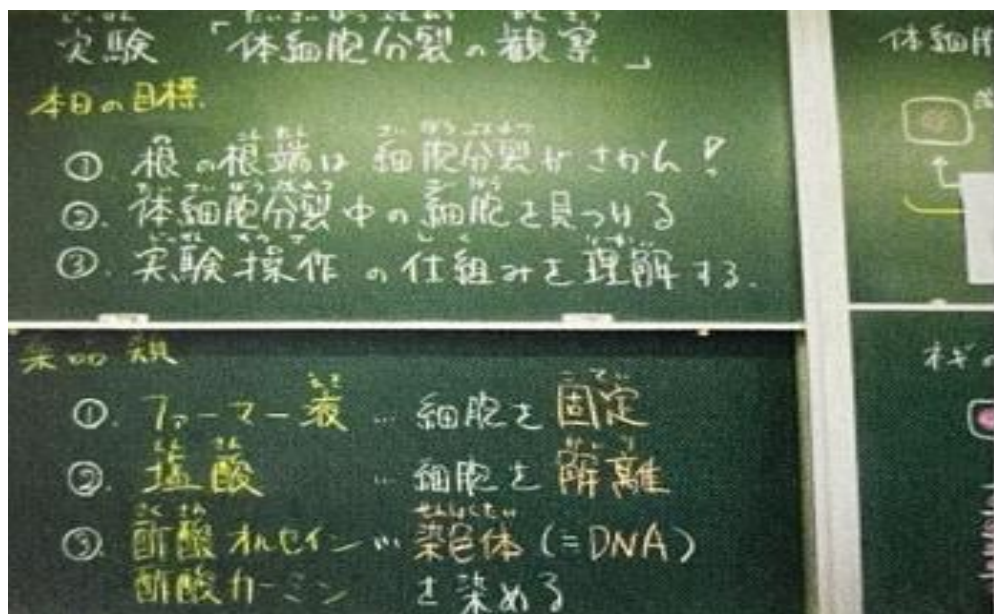 実験 「体細胞分裂の観察」
本日の目標
① 根の根端は 細胞分裂がさかん!
②. 体細胞分裂中の細胞を見つける
③. 実験操作の仕組みを理解する.
薬品類
①. ファーマー液 … 細胞を固定
②. 塩酸 … 細胞を解離
③. 酢酸オルセイン … 染色体(=DNA)
酢酸カーミン を染める
体細胞